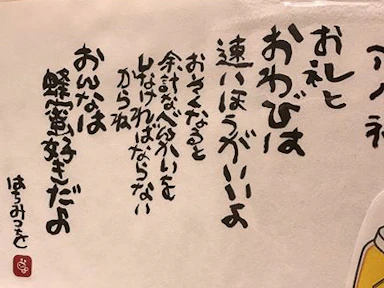 お礼と
おわびは
速いほうがいいよ
おそくなると
余計なべんかいを
しなければならない
からね
おんなは
蜂蜜好きだよ
はちみつをと